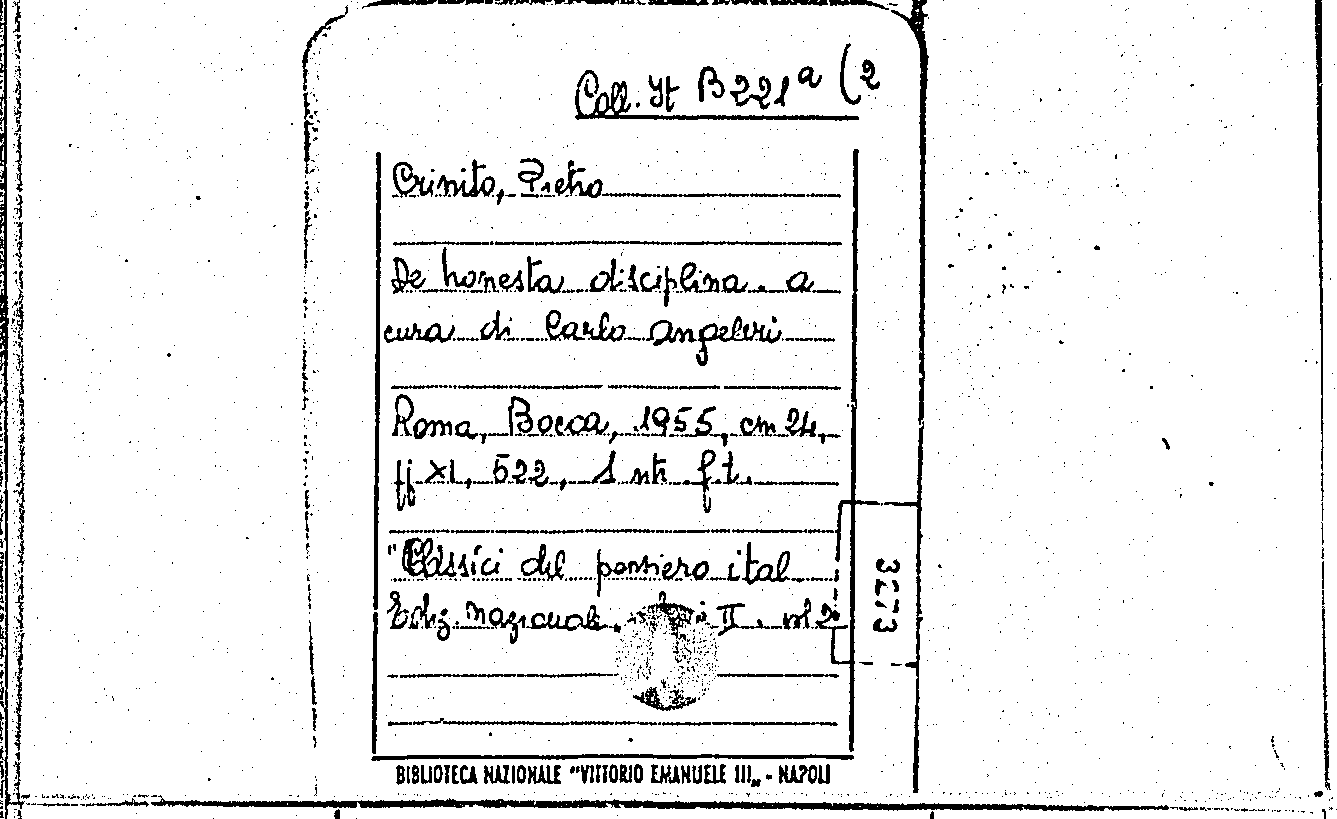 Coll. It B 221 a (2
Crinito, Pietro
De honesta disciplina. a
cura di Carlo Angeleri
Roma, Bocca, 1955, cm 24,
pp XI, 522, 1 rtr f.t.
"Classici del pensiero ital
Ediz. Nazionale. II. vol 2.
3273
BIBLIOTECA NAZIONALE "VITTORIO EMANUELE III„ - NAPOLI